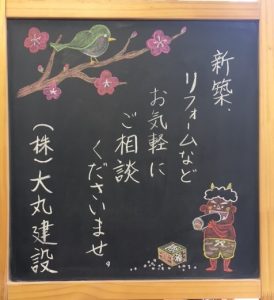 新築、
リフォームなど
お気軽に
ご相談
くださいませ。
（株）大丸建設